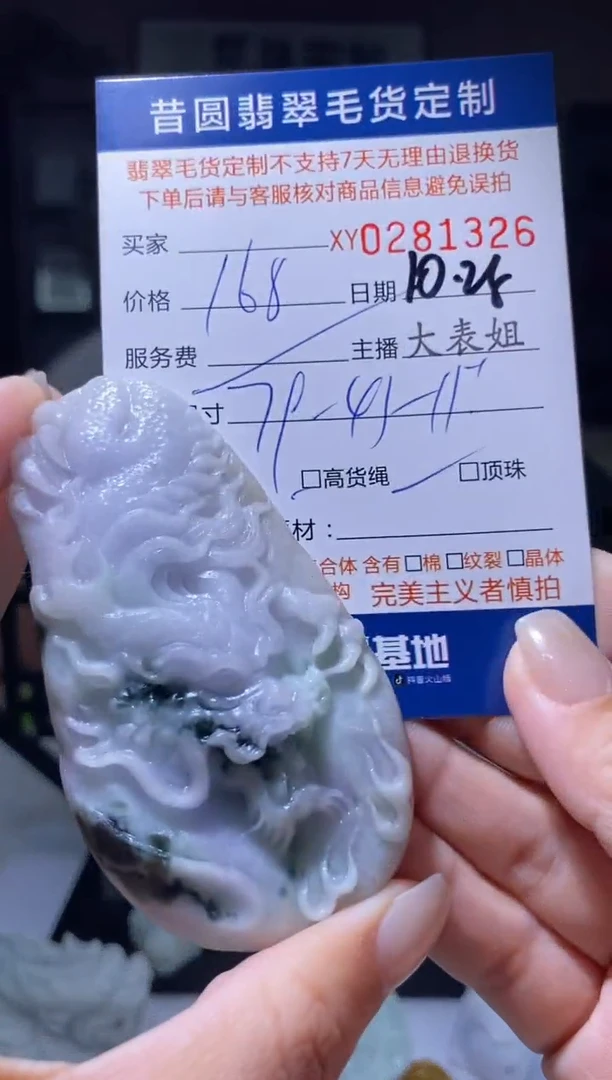 昔圆翡翠毛货定制
翡翠毛货定制不支持7天无理由退换货
下单后请与客服核对商品信息避免误拍
买家 XY0281326
价格 168 日期 10.28
服务费 主播 大表姐
寸
□高货绳 □顶珠
材：
合体 含有□棉 □纹裂 □晶体
构 完美主义者慎拍
基地
抖音火山版